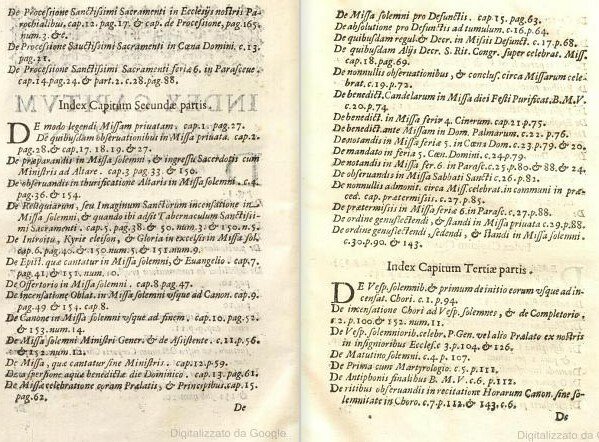 De Processione Sanctissimi Sacramenti in Ecclesijs nostris Pa-
rochialibus, cap.12. pag.17. & cap. de Processione, pag.165.
num.3. &c.
De Processione Sanctissimi Sacramenti in Cœna Domini, c.13.
pag.11.
De Processione Sanctissimi Sacramenti feria 6. in Parasceue.
cap.14. pag.24. & part.2. c.28. pag.88.
Index Capitum Secundæ partis.
DE modo legendi, Missam priuatam, cap.1. pag.27.
De quibusdam obseruationibus in Missa priuata. cap.2.
pag.28. & cap.17. 18. 19. & 27.
De præparandis in Missa solemni, & ingressu Sacerdotis cum
Ministris ad Altare. cap.3 pag.33. & 150.
De obseruandis in thurificatione Altaris in Missa solemni, c.4.
pag.36. & 154.
De Reliquiarum, seu Imaginum Sanctorum incensatione in
Missa solemni, & quando ibi adsit Tabernaculum Sanctissi-
mi Sacramenti. cap.5. pag.38. & 50. num.3. & 150. n.5.
De Introitu, Kyrie eleison, & Gloria in excelsis in Missa sol.
cap.6. pag.40. & 150. num.5. & 151. num.9.
De Epist. quæ cantatur in Missa solemni, & Euangelio. cap.7.
pag.41. & 151. num.10.
De Offertorio in Missa solemni. cap.8. pag.47.
De incensatione Oblat. in Missa solemni vsque ad Canon. cap.9.
pag.49 & 154. cap.8.
De Canone in Missa solemni vsque ad finem. cap.10. pag.52.
& 153. num.14.
De Missa solemni Ministri Gener. & de Assistente. c.11. p.56.
& 152. num.12.
De Missa, quæ cantatur sine Ministris. cap.12. p.59.
De aspersione aquæ benedictæ die Dominico. cap.13. pag.61.
De Missæ celebratione coram Prælatis, & Principibus. cap.15.
pag.62.
De
De Missa solemni pro Defunctis. cap.15. pag.63.
De absolutione pro Defunctis ad tumulum. c.16. p.64.
De quibusdam regul. & Decr. in Missis Defunct. c.17. p.68.
De quibusdam Alijs Decr. S. Rit. Congr. super celebrat. Miss.
cap.18. pag.69.
De nonnullis obseruationibus, & conclus. circa Missarum cele-
brat. c.19. p.72.
De benedict. Candelarum in Missa diei Festi Purificat. B.M.V.
c.20. p.74.
De benedict. in Missa feriæ 4. Cinerum. cap.21 p.75.
De benedict. ante Missam in Dom. Palmarum. c.22. p.76.
De notandis in Missa feria 5. in Cœna Dom. c.23. p.79. & 20.
De mandato in feria 5. Cœn. Domini. c.24. p.79.
De notandis in Missa fer. 6. in Parasc. c.25. p.80. & 88. & 24.
De obseruandis in Missa Sabbati Sancti. c.26. p.82.
De nonnullis admonit. circa Miss. celebrat. in communi in præ-
ced. cap. prætermissis. c.27. p.85.
De prætermissis in Missa feriæ 6. in Parasc. c.28. p.88.
De ordine genuflectendi, & standi in Missa priuata c.29. p.88.
De ordine genuflectendi, sedendi, & standi in Missa solemni.
c.30. p.90. & 143.
Index Capitum Tertiæ partis.
DE Vesp. solemnib. & primum de initio eorum vsque ad in-
censat. Chori. c.1. p.94.
De incensatione Chori ad Vesp. solemnes, & de Completorio.
c.2. p.100. & 152. num.11.
De Vesp. solemniorib. celebr. P. Gen. vel alio Prælato ex nostris
in insignioribus Eccles. c.3. p.104. & 126.
De Matutino solemni. c.4. p. 107.
De Prima cum Martyrologio. c.5. p.111.
De Antiphonis finalibus B. M. V. c.6. p.112.
De ritibus obseruandis in recitatione Horarum Canon. sine so-
lemnitate in Choro. c.7. p.112. & 143. c.6.
De
Digitalizzato da Google
Digitalizzato da G